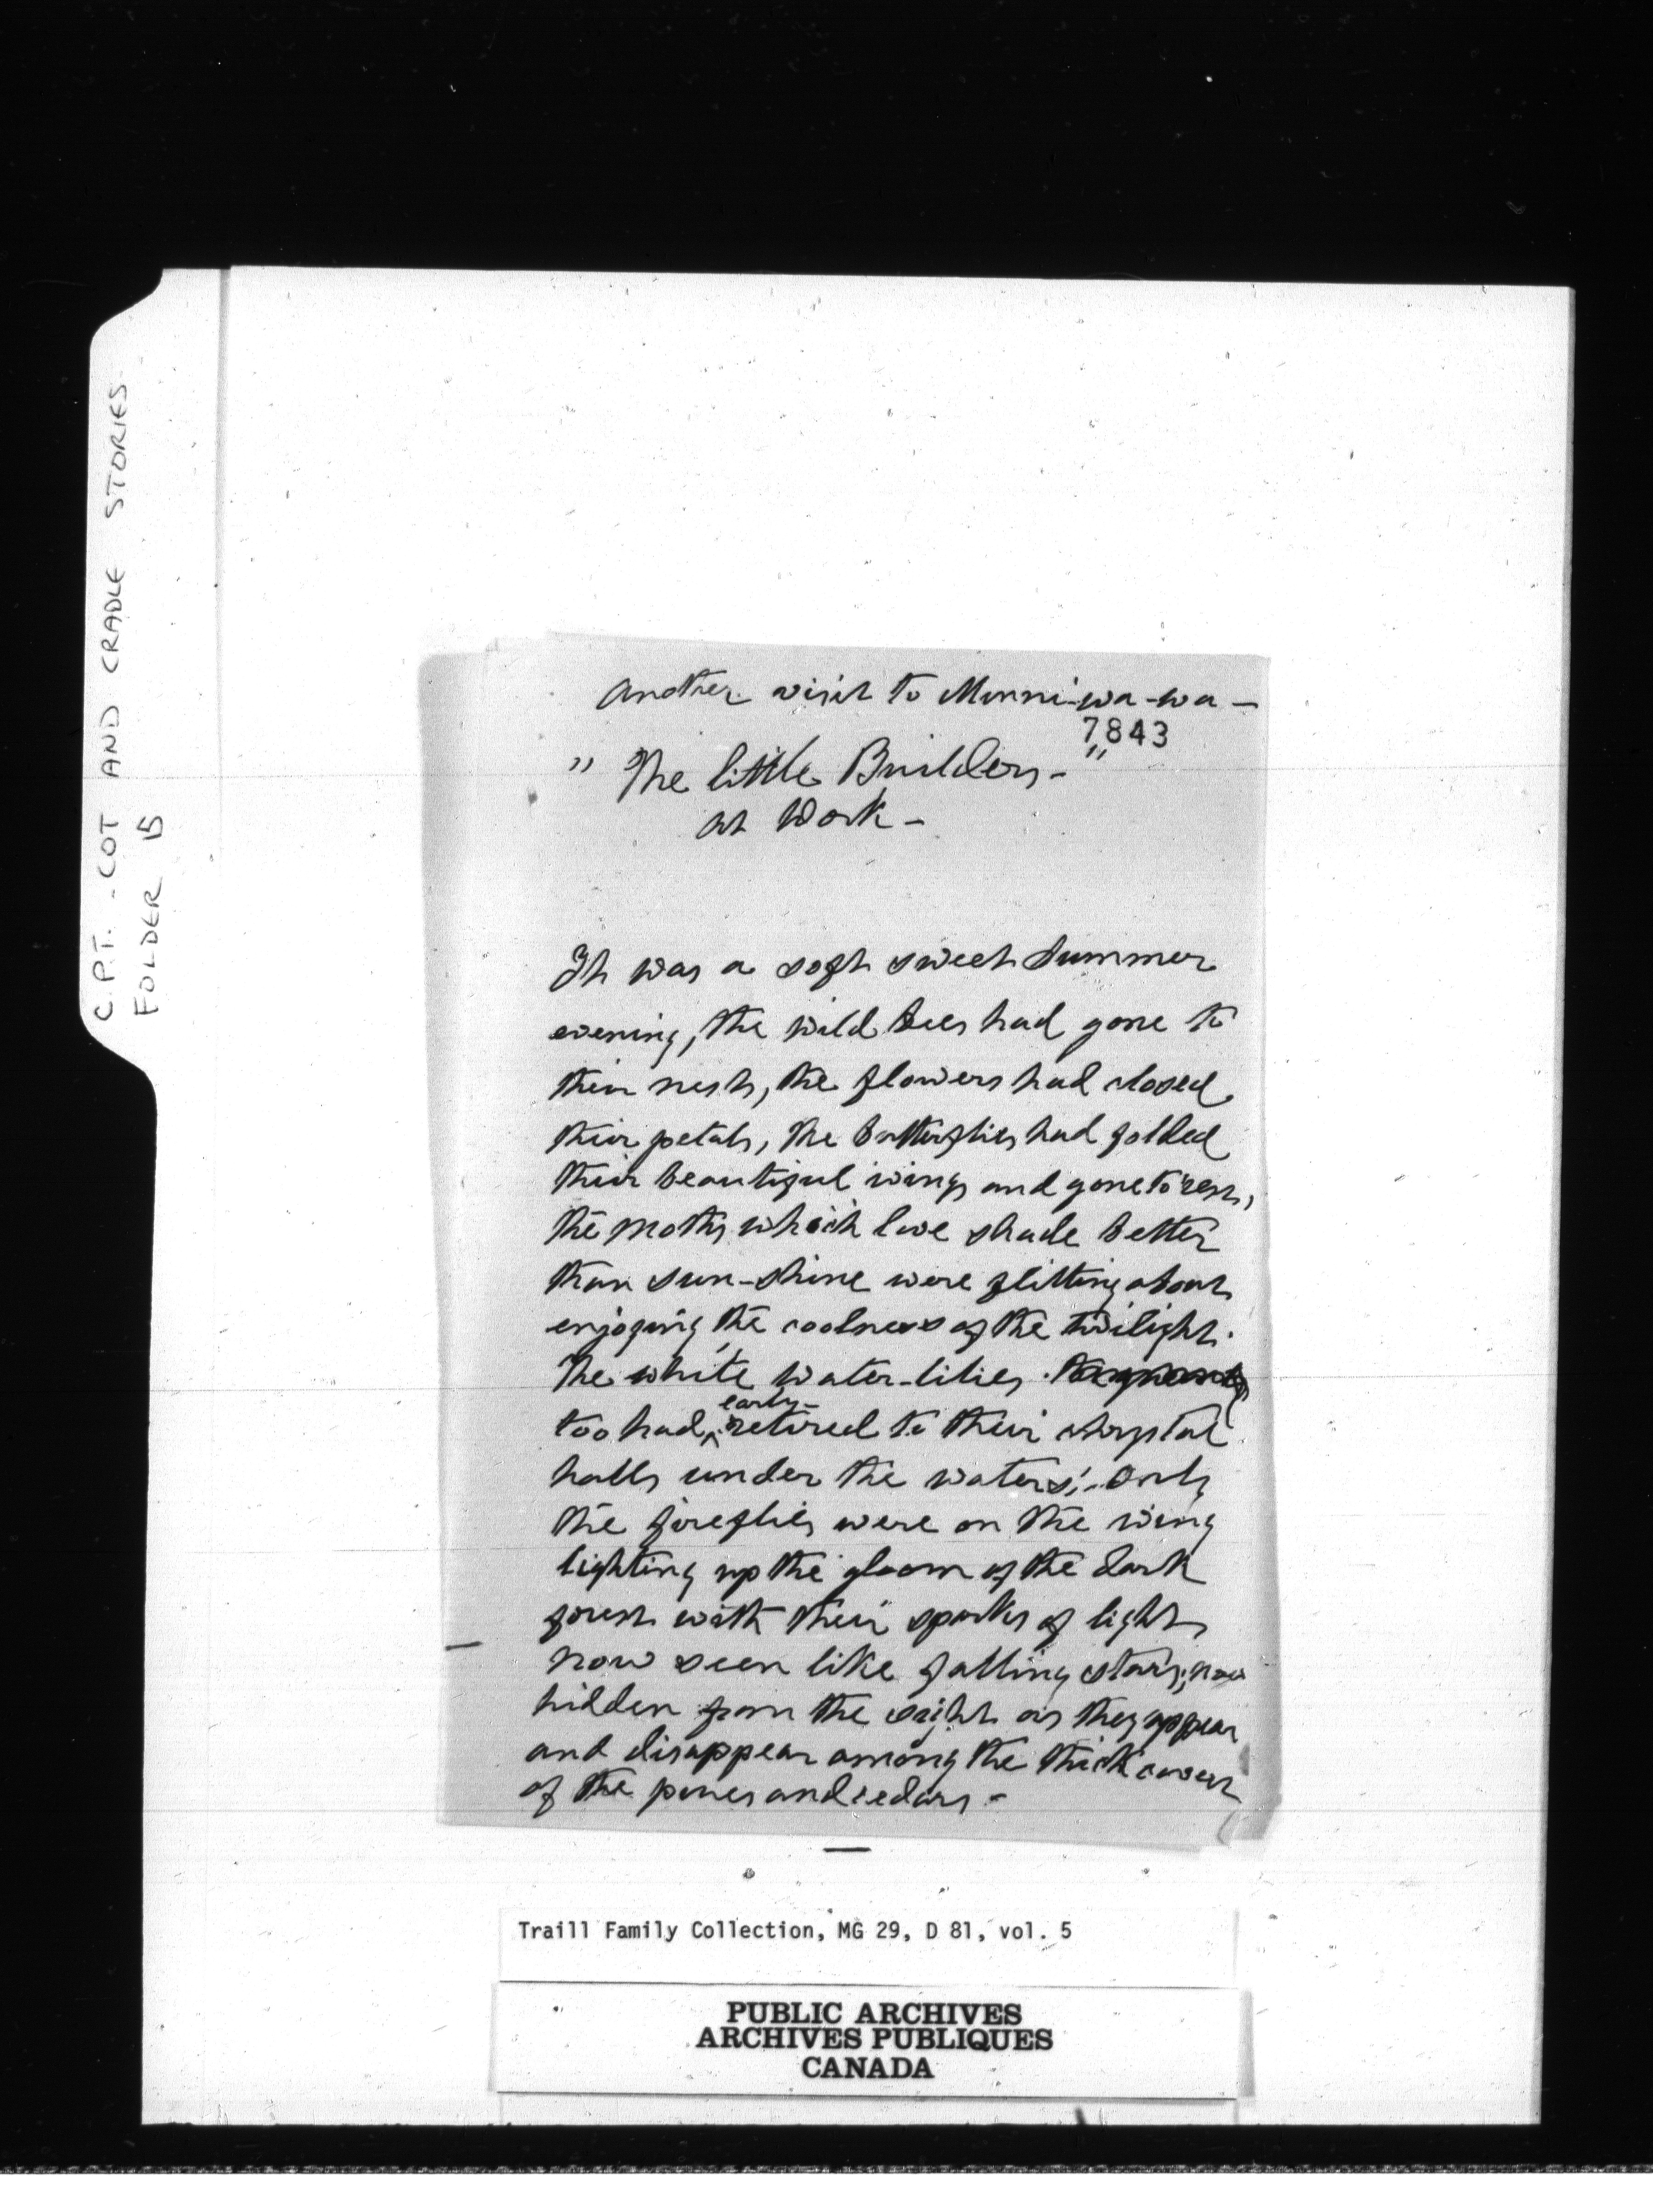 C.P.T. - COT AND CRADLE STORIES
FOLDER 15
Another visit to Minni-wa-wa -
7843
" The little Builders - "
at Work -
It was a soft sweet Summer
evening, the wild bees had gone to
their nests, the flowers had closed
their petals, the butterflies had folded
their beautiful wings and gone to rest,
the moths which love shade better
than sun-shine were flitting about
enjoying the coolness of the twilight.
The white water-lilies
early -
too had ^ retired to their chrystal
halls under the waters; - only
the fireflies were on the wing
lighting up the gloom of the dark
forest with their sparks of light
now seen like falling stars; now
hidden from the sight as they appear
and disappear among the thick covert
of the pines and cedars -
Traill Family Collection, MG 29, D 81, vol. 5
PUBLIC ARCHIVES
ARCHIVES PUBLIQUES
CANADA